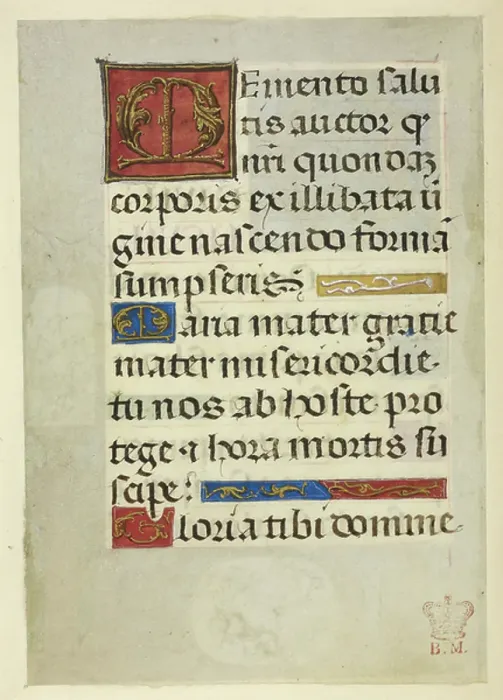 MEmento salu
tis auctor qͣ
nr̄i quondaꝫ
corporis ex illibata ui
gine nascendo formā
sumpseris.
Maria mater gratie
mater misericordie.
tu nos ab hoste pro
tege ⁊ hora mortis su
scipe:
Gloria tibi domine
B.M.